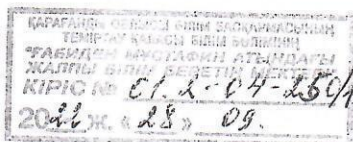 ҚАРАҒАНДЫ ОБЛЫСЫ БІЛІМ БАСҚАРМАСЫНЫҢ
ТЕМІРТАУ ҚАЛАСЫ БІЛІМ БӨЛІМІНІҢ
"ҒАБИДЕН МҰСТАФИН АТЫНДАҒЫ
ЖАЛПЫ БІЛІМ БЕРЕТІН МЕКТЕБІ"
КІРІС № 01.2-04-250/1
2022 Ж. « 28 » 09.